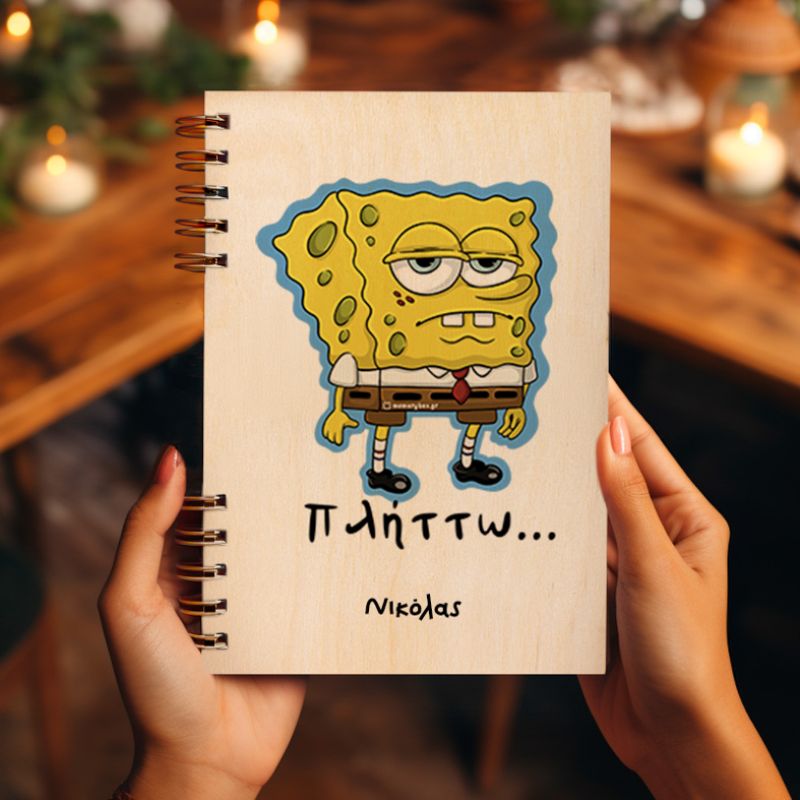 momentybox.gr
Πλήττω...
Νικόλας